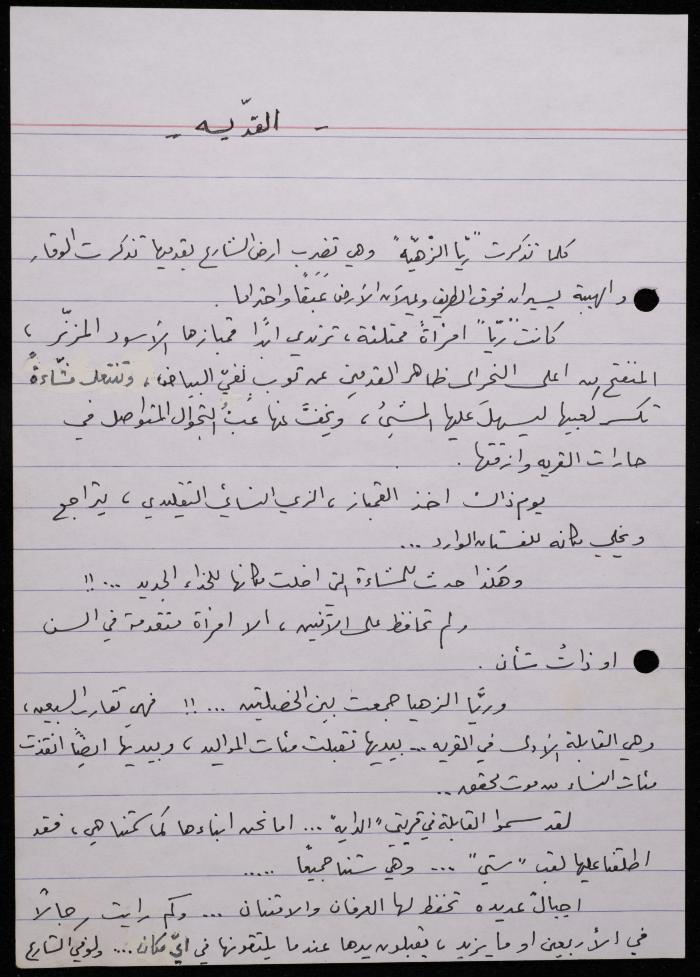 - القدّيسه -
كلما تذكرت "ريّا الزْهيّه" وهي تضرب ارض الشارع بقدميها تذكرت الوقار
والهيبة يسيران فوق الطريق ويملآن الأرض عَبَقًا واحتراما .
كانت "ريّا" امرأةً ممتلئة ، ترتدي ابدًا قمبازها الأسود المزنّر ،
المنفتح من اعلى النحر الى ظاهر القدمين عن ثوب نقيّ البياض ، وتنتعل مشّاءةً
تكسر كعبيها ليسهلَ عليها المشيُ ، ويخفَّ عنها عبءُ التجوال المتواصل في
حارات القريه وازقتها .
يوم ذاك اخذ القمباز ، الزي النسائي التقليدي ، يتراجع
ويخلي مكانه للفستان الوارد ...
وهكذا حدث للمشاءة التي اخلت مكانها للحذاء الجديد ... !!
ولم تحافظ على الاثنين ، الا امرأة متقدمة في السن
او ذاتُ شأن .
وريَّا الزهيا جمعت بين الخصلتين ... !! فهي تقارب السبعين ،
وهي القابلة الأولى في القريه .. بيديها تقبلت مئات المواليد ، وبيديها ايضًا انقذت
مئات النساء من موت محقق ..
لقد سموا القابلة في قريتي "الدايه" ... اما نحن ابناءها كما سمّتنا هي ، فقد
اطلقنا عليها لقب "ستي" ... وهي ستنا جميعًا .....
اجيالٌ عديده تحفظ لها العرفان والامتنان ... وكم رايت رجالًا
في الأربعين او ما يزيد ، يقبلون يدها عندما يلتقونها في ايّ مكان ... ولو في الشارع